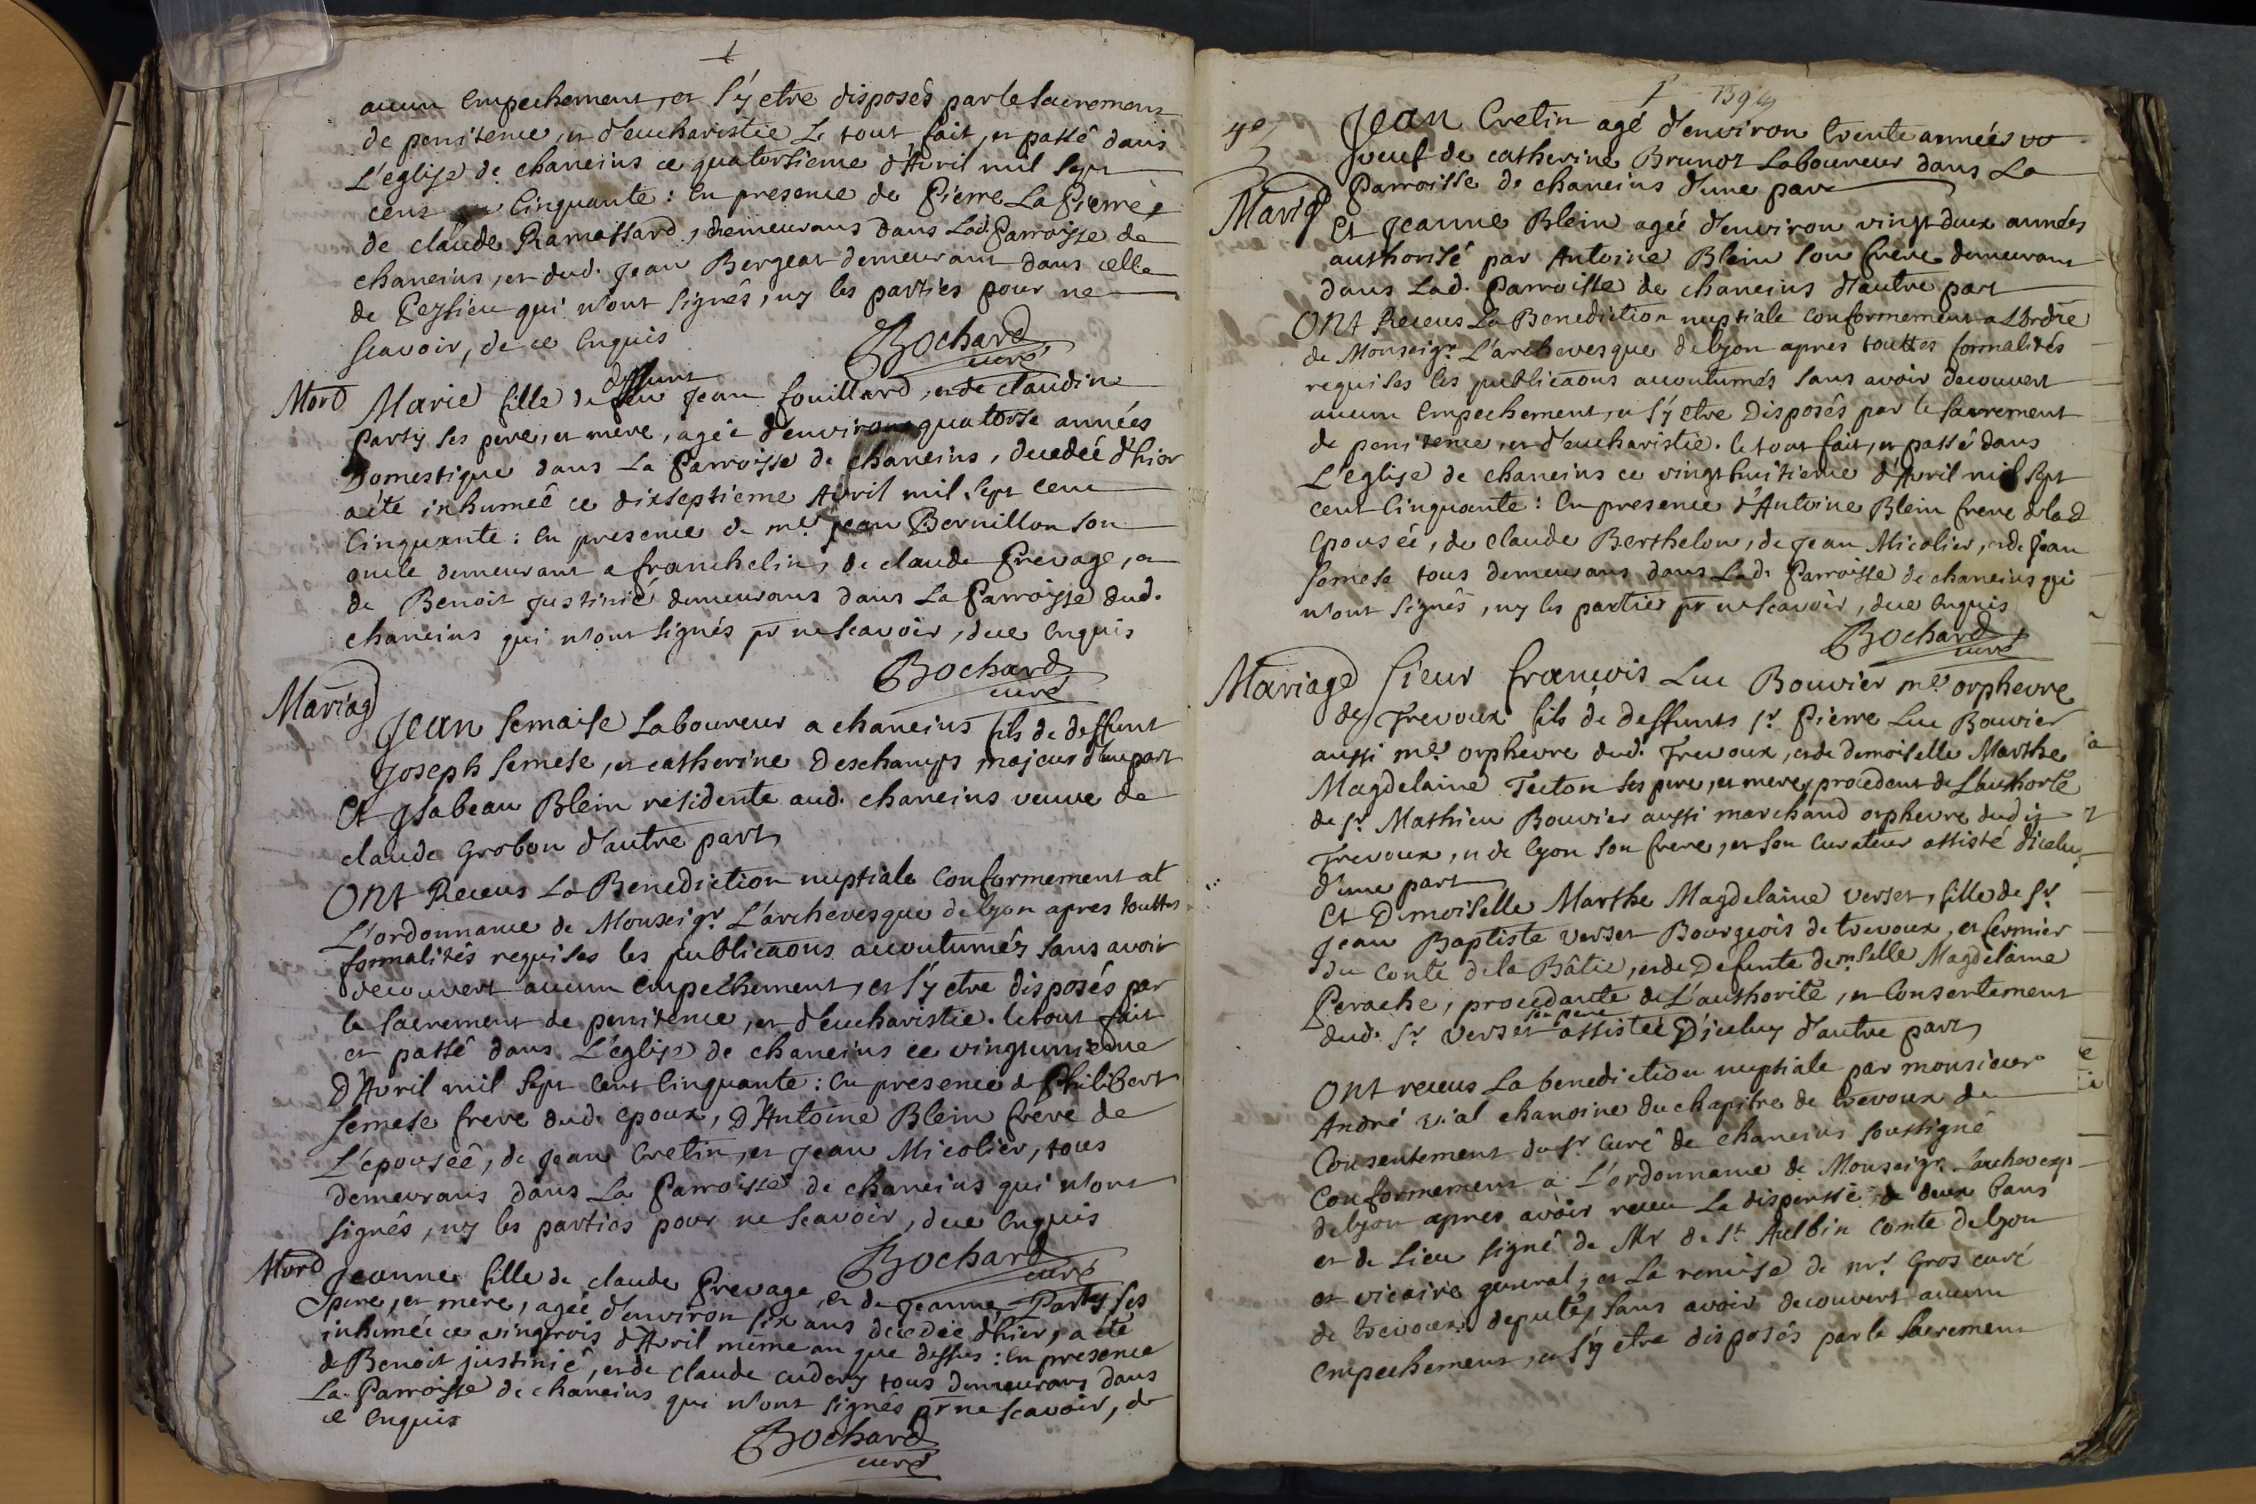 aucun Empechement, et s'y etre disposés par le sacremens
de penitence, et d'eucharistie Le tout fait, et passé dans
L'église de chaneins ce quatorsieme d'Avril mil sept
cens Cinquante : En presence de Pierre La Pierre,
de claude Ramassard, demeurans dans Lad. Parroisse de
chaneins, et dud. Jean Bergeat demeurant dans celle
de Peysieu qui n'ont signés, ny les parties pour ne
scavoir, de ce Enquis
Bochard
curé
Mort Marie fille de deffunt Jean fouillard, et de claudine
Party ses pere, et mere, agée d'environ quatorse années
Domestique dans La Parroisse de chaneins, decedée d'hier
a été inhumée ce dixseptieme Avril mil sept Cent
Cinquante : En presence de me. Jean Bernillon son
oncle demeurant a franchelins, de claude Prevage, et
de Benoit Justinié demeurans dans La Parroisse dud.
chaneins qui n'ont signés pr ne scavoir, de ce Enquis
Bochard
curé
Mariag Jean semaise Laboureur a chaneins fils de deffunt
Joseph semese, et catherine Deschamps majeur d'une part
Et Isabeau Blein residente aud. chaneins veuve de
claude Grobon d'autre part
ONt Receus La Benediction nuptiale Conformement at
L'ordonnance de Monseigr. L'archevesque de lyon apres touttes
formalités requises les publicaons accoutumés sans avoir
decouvert aucun empechement, et s'y etre disposés par
le sacrement de penitence, et d'eucharistie. le tout fait
et passé dans L'eglise de chaneins ce vingtunieme
D'Avril mil sept Cent Cinquante : En presence de Philibert
semese frere dud. epoux, D'Antoine Blein frere de
L'epousée, de Jean Cretin, et Jean Micolier, tous
demeurans dans La Parroisse de chaneins qui n'ont
signés, ny les parties pour ne scavoir, de ce Enquis
Bochard
curé
Mord Jeanne fille de claude Prevage, et de Jeanne Party ses
pere, et mere, agée d'environ six ans decedée d'hier, a eté
inhumée ce vingtrois d'Avril même an que dessus : En presence
de Benoit justinié, et de claude cudery tous demeurans dans
La Parroisse de chaneins qui n'ont signés pr ne scavoir, de
ce Enquis
Bochard
curé
Jean Cretin agé d'environ trente années
veuf de catherine Brunot Laboureur dans La
Mariag Parroisse de chaneins d'une part
Et Jeanne Blein agée d'environ vingt deux années
authorisé par Antoine Blein son frere demeurant
dans Lad. Parroisse de chaneins d'autre part
ONt Receus La Benediction nuptiale conformement a L'Ordre
de Monseigr. L'archevesque de lyon apres touttes formalités
requises les publicaons accoutumés sans avoir decouvert
aucun Empechement, et s'y etre Disposés par le sacrement
de penitence, et d'eucharistie. le tout fait, et passé dans
L'eglise de chaneins ce vingthuitieme d'Avril mil sept
cent Cinquante : En presence d'Antoine Blein frere de lad
epousée, de claude Berthelon, de Jean Micolier, et de Jean
semese tous demeurans dans Lad. Parroisse de chaneins qui
n'ont signés, ny les parties pr ne scavoir, de ce Enquis
Bochard
curé
Mariage sieur françois Luc Bouvier me. orphevre
de Trevoux fils de deffunts sr. Pierre Luc Bouvier
aussi me. orphevre dud. Trevoux, et de demoiselle Marthe
Magdelaine Teiton ses pere, et mere, procedent de L'authorté
de sr. Mathieu Bouvier aussi marchand orphevre dudit
Trevoux, et de lyon son frere, et son curateur assisté d'icelui
d'une part
Et Demoiselle Marthe Magdelaine verset, fille de sr.
Jean Baptiste verset Bourgeois de trevoux, et fermier
du Conté de la Bâtie, et de Defunte demselle Magdelaine
Perache, procedante de L'authorité, et Consentement
dud. sr. verset son pere assistée D'iceluy d'autre part
ONt receus La benediction nuptiale par monsieur
André vial chanoine du chapitre de trevoux du
Consentement du sr. curé de chaneins soussigné
Conformement a L'ordonnance de Monseigr. L'archevesq.
de lyon apres avoir receu La dispensse de deux bans
et de lieu signé de Mr de st. Aulbin comte de lyon
et vicaire general, et La remise de mr. Gros curé
de trevoux deputés sans avoir decouvert aucun
empechement, et s'y etre disposés par le sacrement